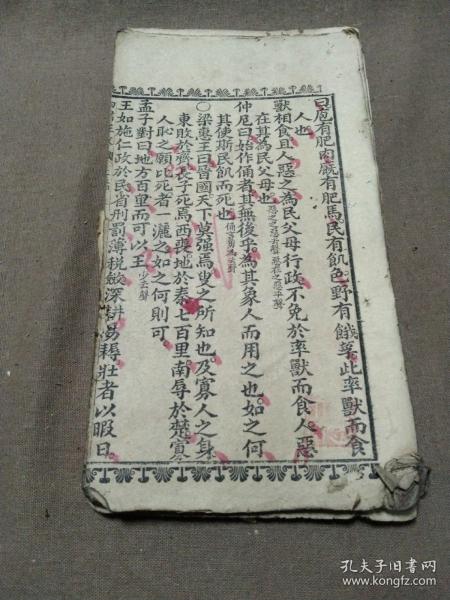 曰庖有肥肉廄有肥馬民有飢色野有餓莩此率獸而食
人也
獸相食且人惡之為民父母行政不免於率獸而食人惡
在其為民父母也
仲尼曰始作俑者其無後乎為其象人而用之也如之何
其使斯民飢而死也
○梁惠王曰晉國天下莫强焉叟之所知也及寡人之身
東敗於齊長子死焉西喪地於秦七百里南辱於楚寡
人恥之願比死者一灑之如之何則可
孟子對曰地方百里而可以王
王如施仁政於民省刑罰薄稅斂深耕易耨壯者以暇日
孔夫子旧书网
www.kongfz.com